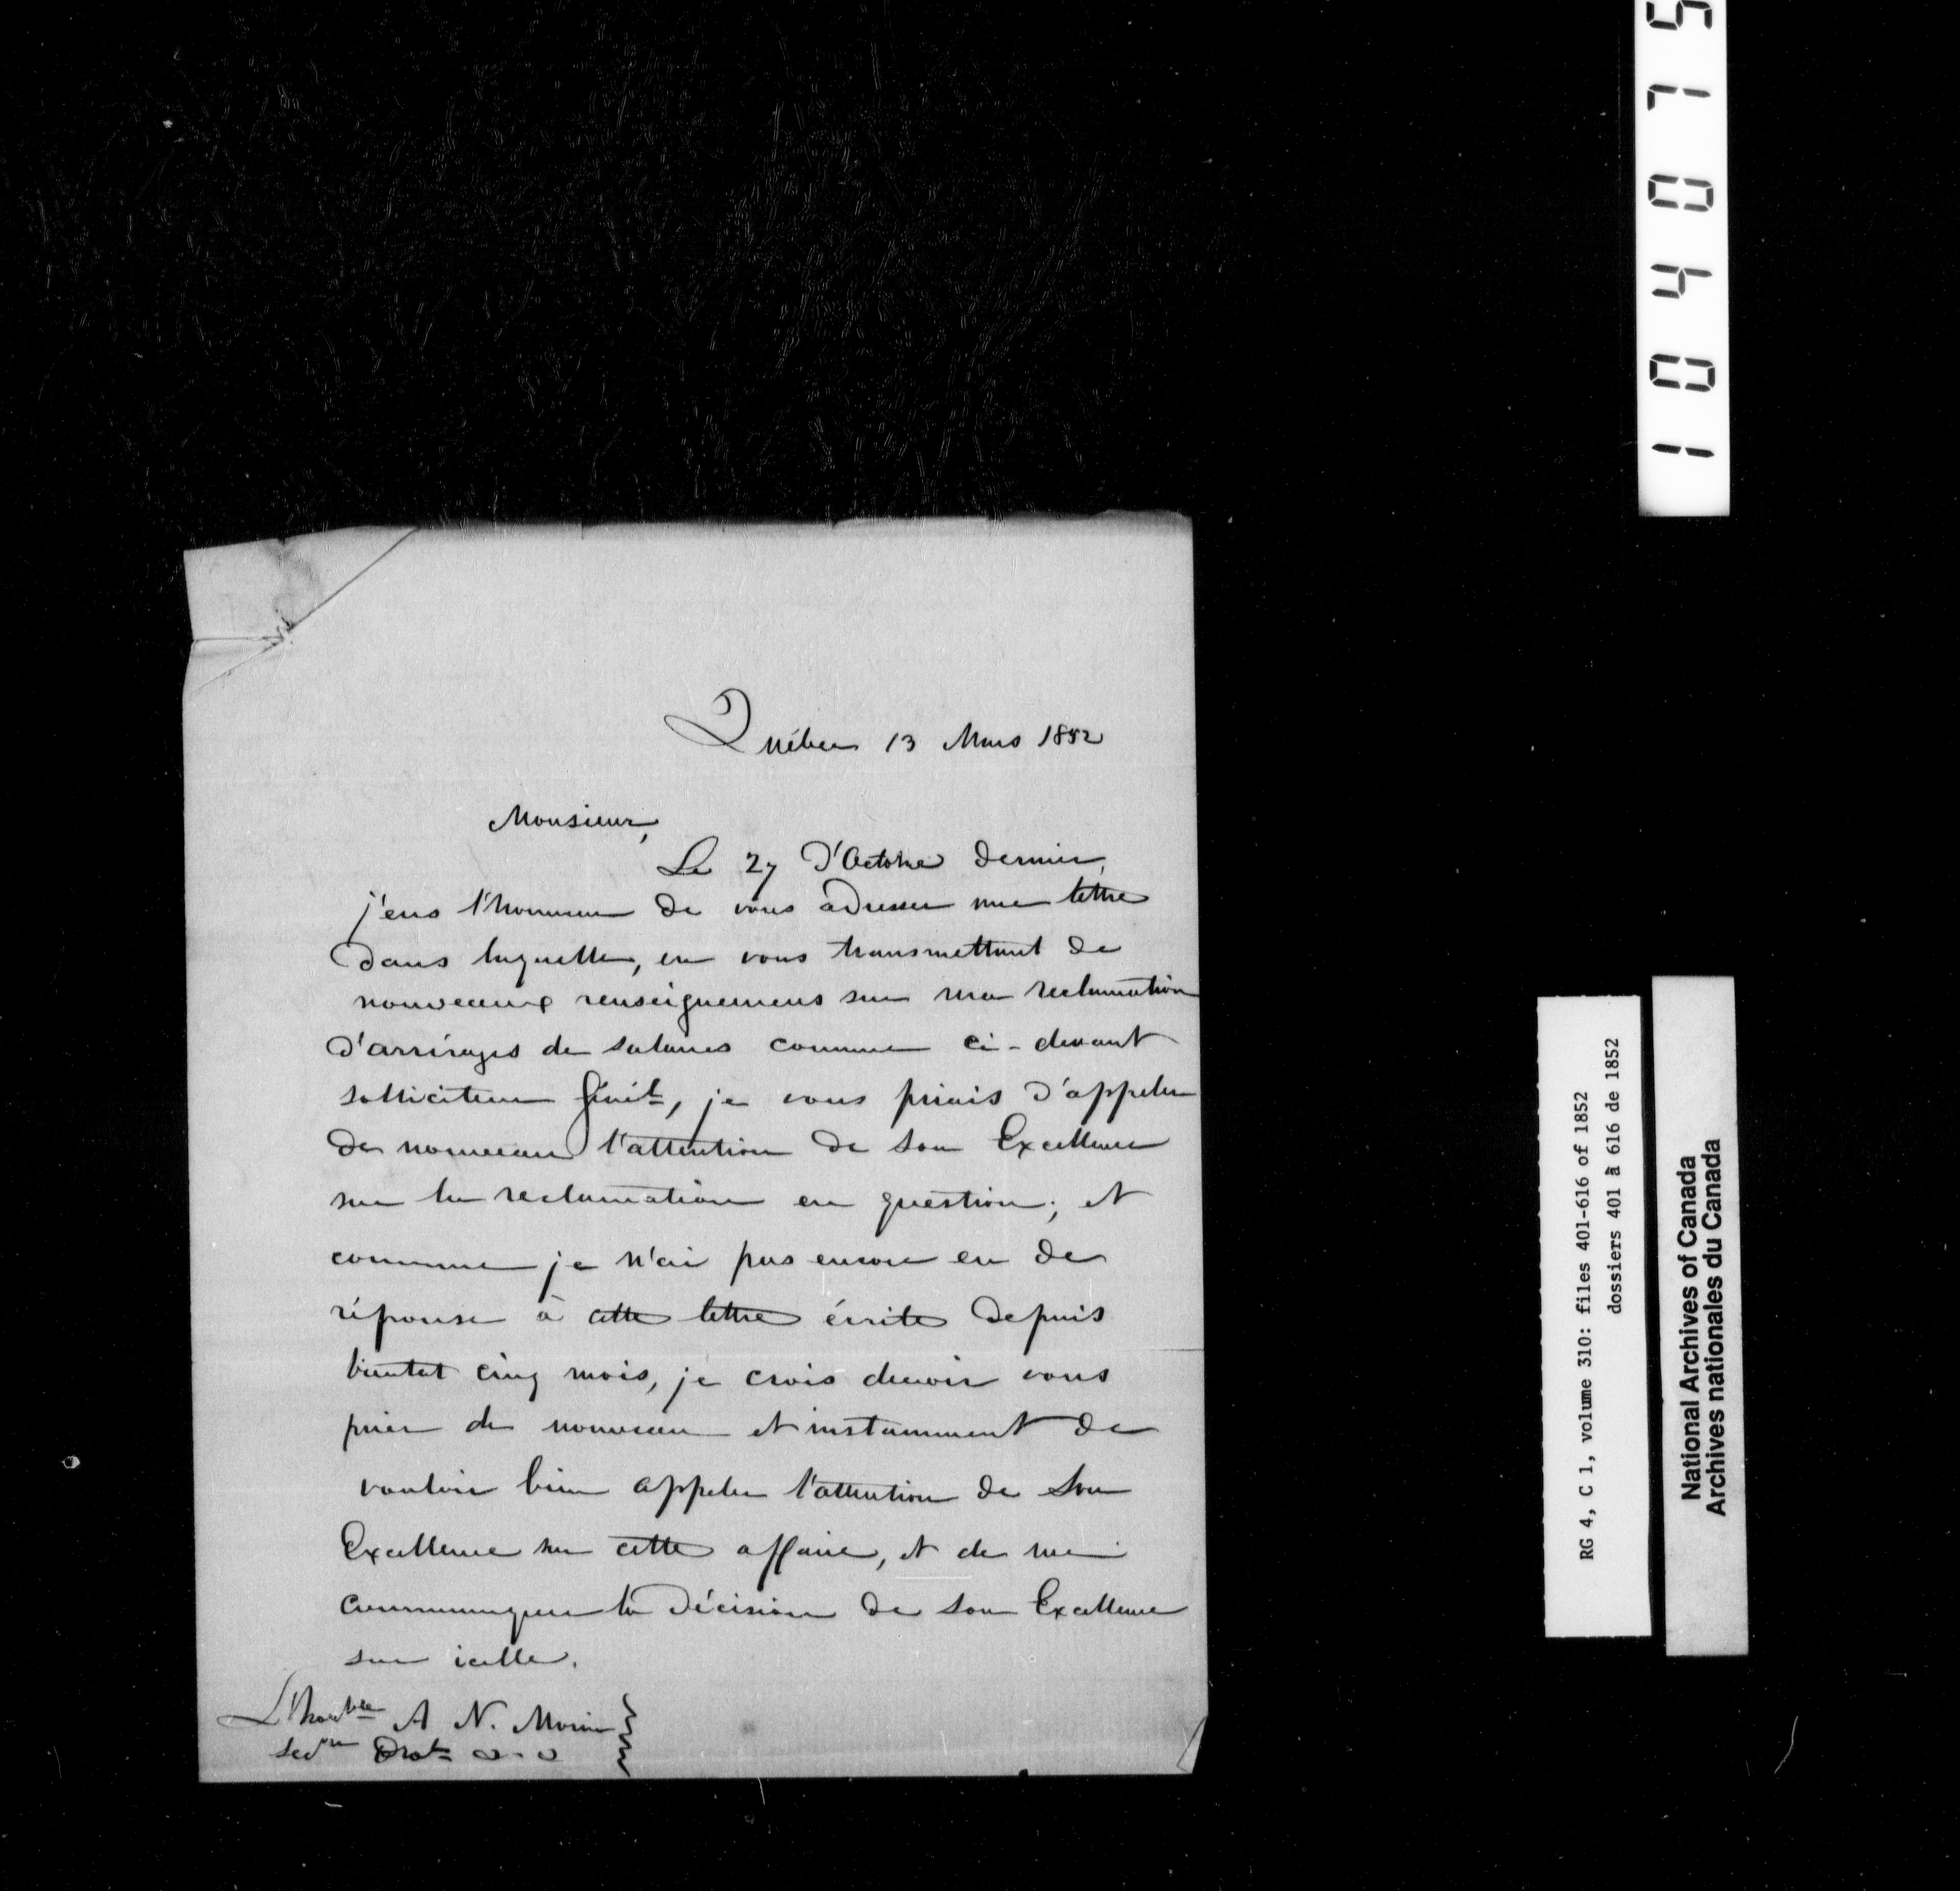 Québec 13 Mars 1852
Monsieur,
Le 27 d'Octobre dernier,
j'eus l'honneur de vous adresser une lettre
dans laquelle, en vous transmettant de
nouveaux renseignemens sur ma reclamation
d'arrérages de salaires comme ci-devant
solliciteur Génl, je vous priais d'appeler
de nouveau l'attention de Son Excellence
sur la reclamation en question; et
comme je n'ai pas encore eu de
réponse à cette lettre écrite depuis
bientot cinq mois, je crois devoir vous
prier de nouveau et instamment de
vouloir bien appeler l'attention de Son
Excellence sur cette affaire, et de me
communiquer la décision de Son Excellence
sur icelle.
L'honble A N. Morin
Secre
104075
RG 4, C 1, volume 310: files 401-616 of 1852
dossiers 401 à 616 de 1852
National Archives of Canada
Archives nationales du Canada